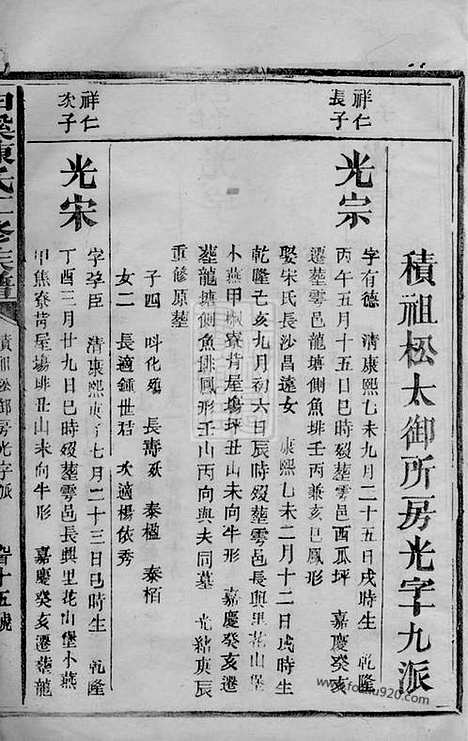 積祖松太御所房光字十九派
祥仁
長子
光宗
字有德 清康熙乙未九月二十五日戌時生 乾隆
丙午五月十五日巳時歿塟雲邑西瓜坪 嘉慶癸亥
遷塟雲邑龍塘側魚排壬丙兼亥巳鳳形
娶宋氏長沙昌遠女 康熙乙未二月十二日戌時生
乾隆己亥九月初六日辰時歿塟雲邑長興里花山堡
小燕甲椒寮背屋塲坪丑山未向牛形 嘉慶癸亥遷
塟龍塘側魚排鳳形壬山丙向與夫同墓 光緒庚辰
重修原塟
子四 科化殤 長壽殀 泰楹 泰栢
女二 長適鍾世君 次適楊依秀
祥仁
次子
光宋
字孚臣 清康熙庚子七月二十三日巳時生 乾隆
丁酉三月廿九日巳時歿塟雲邑長興里花山堡小燕
甲焦寮背屋塲排丑山未向牛形 嘉慶癸亥遷塟龍
陳氏五修族譜
積祖松御房光字派
十五號
www.fojiu920.com